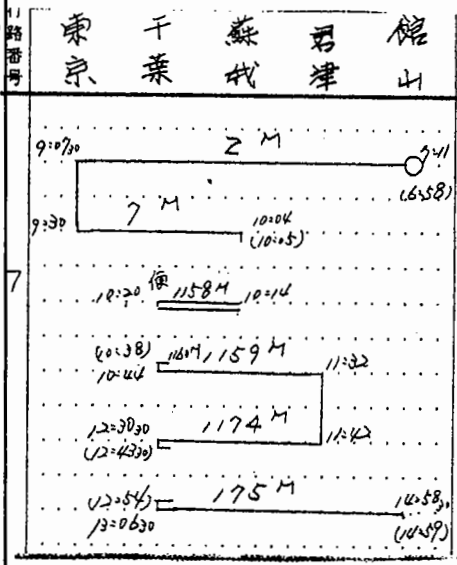 行路番号
東京 千葉 蘇我 君津 館山
2M
9:07 30 7:11
(6:58)
7M
9:30 10:04
(10:05)
7
10:20 便 1158M 10:14
(10:38) 1160M 1159M 11:32
10:44
12:30 30 1174M 11:42
(12:43 30)
(12:54) 175M 14:58 30
13:06 30 (14:59)